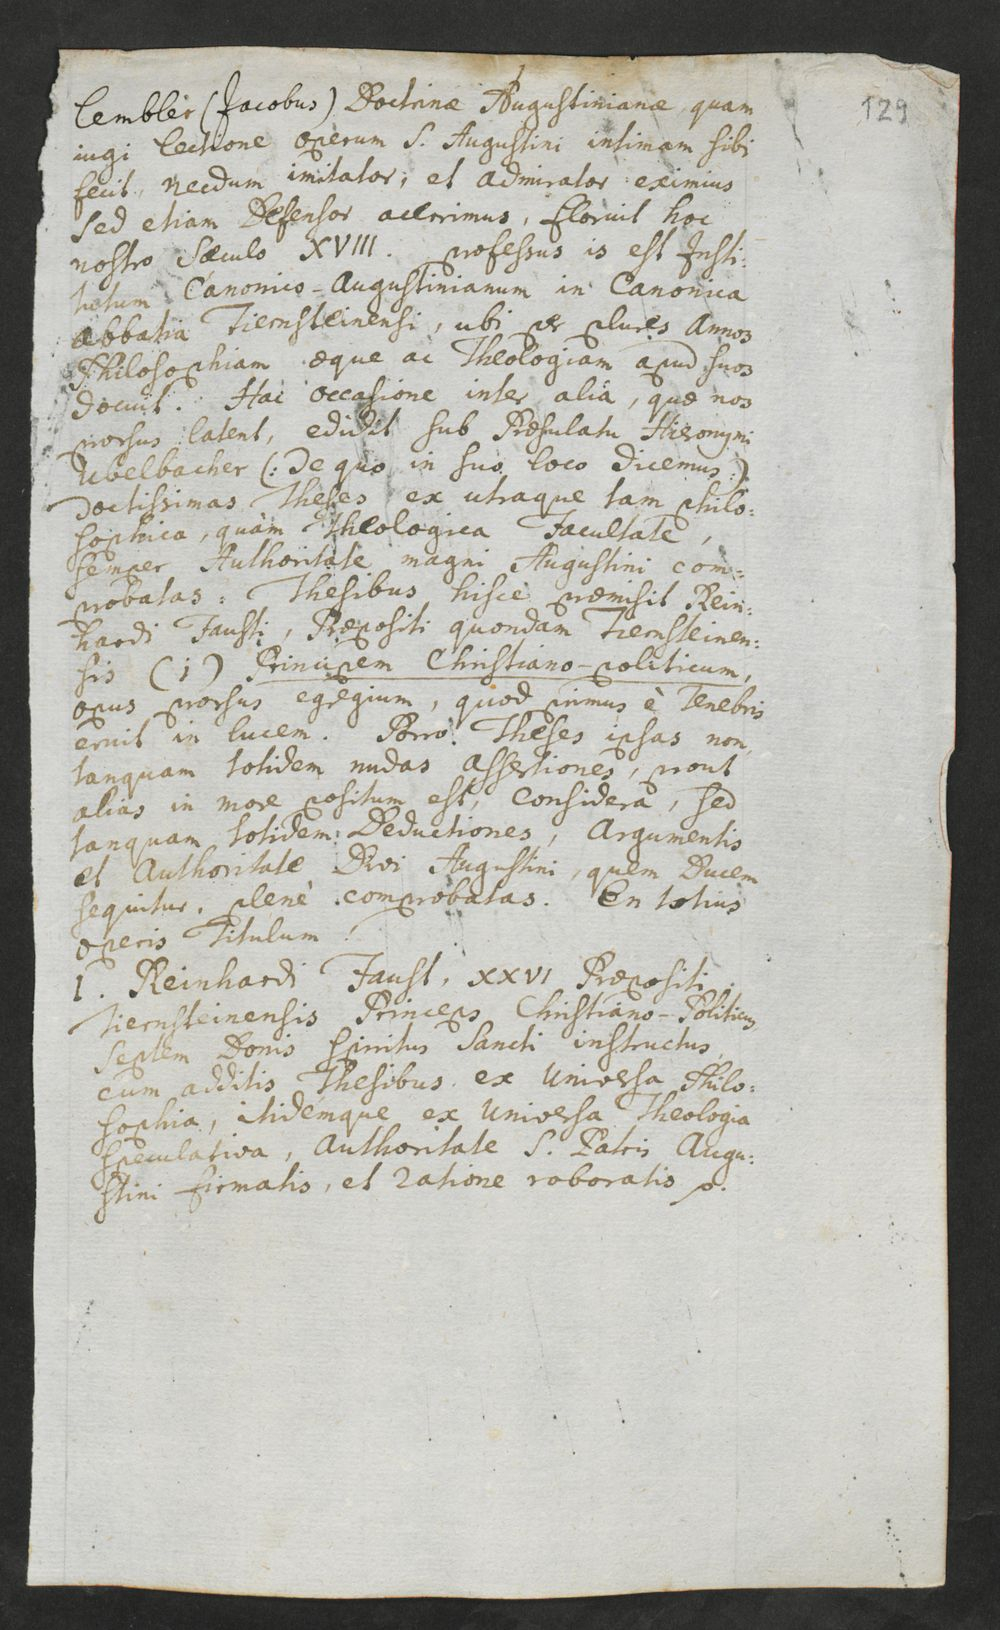 129
Cembler (Jacobus) Doctrinæ Augustinianæ, quam
iugi lectione operum S. Augustini intimam sibi
fecit, necdum imitator, et admirator eximius
sed etiam Defensor acerrimus, floruit hoc
nostro Sæculo XVIII. professus is est Insti:
tutum Canonico-Augustinianum in Canonica
abbatia Tiernsteinensi, ubi per plures Annos
Philosophiam æque ac Theologiam apud suos
docuit. Hac occasione inter alia, quæ nos
prorsus latent, edidit sub Præsulatu Hieronymi
Ubelbacher (: de quo in suo loco dicemus :)
doctissimas Theses ex utraque tam philo:
sophica, quàm Theologica Facultate,
semper Authoritate magni Augustini com:
probatas: Thesibus hisce præmisit Rein:
hardi Fausti, Præpositi quondam Tiernsteinen:
sis (1) Principem Christiano-politicum,
opus prorsus egregium, quod primus è tenebris
eruit in lucem. Porro Theses ipsas non
tanquam totidem nudas assertiones, prout
alias in more positum est, considera, sed
tanquam totidem Deductiones, Argumentis
et Authoritate Divi Augustini, quem Ducem
sequitur, plenè comprobatas. En totius
operis Titulum!
1. Reinhardi Faust, XXVI Præpositi
Tiernsteinensis Princeps Christiano-Politicus,
Septem Donis Spiritus Sancti instructus,
cum additis Thesibus ex Universa Philo:
sophia, itidemque ex Universa Theologia
speculativa, Authoritate S. Patris Augu:
stini firmatis, et ratione roboratis